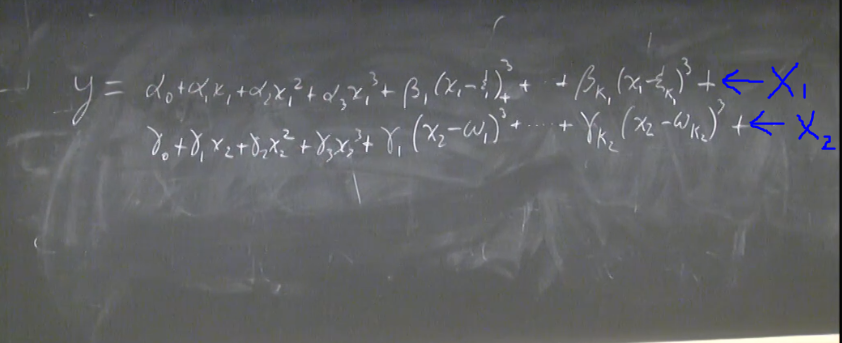 y = α₀+α₁x₁+α₂x₁²+α₃x₁³+β₁(x₁-ξ₁)₊³+ ·· +β_{K₁}(x₁-ξ_{K₁})³+ ← X₁
γ₀+γ₁x₂+γ₂x₂²+γ₃x₂³+γ₁(x₂-ω₁)³+ ···· +γ_{K₂}(x₂-ω_{K₂})³+ ← X₂